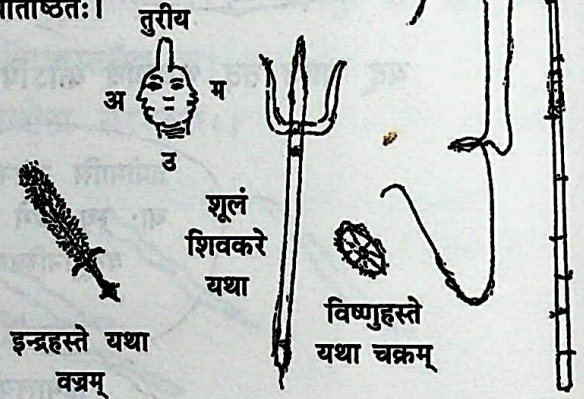 तुरीय
अ
म
उ
शूलं
शिवकरे
यथा
इन्द्रहस्ते यथा
वज्रम्
विष्णुहस्ते
यथा चक्रम्